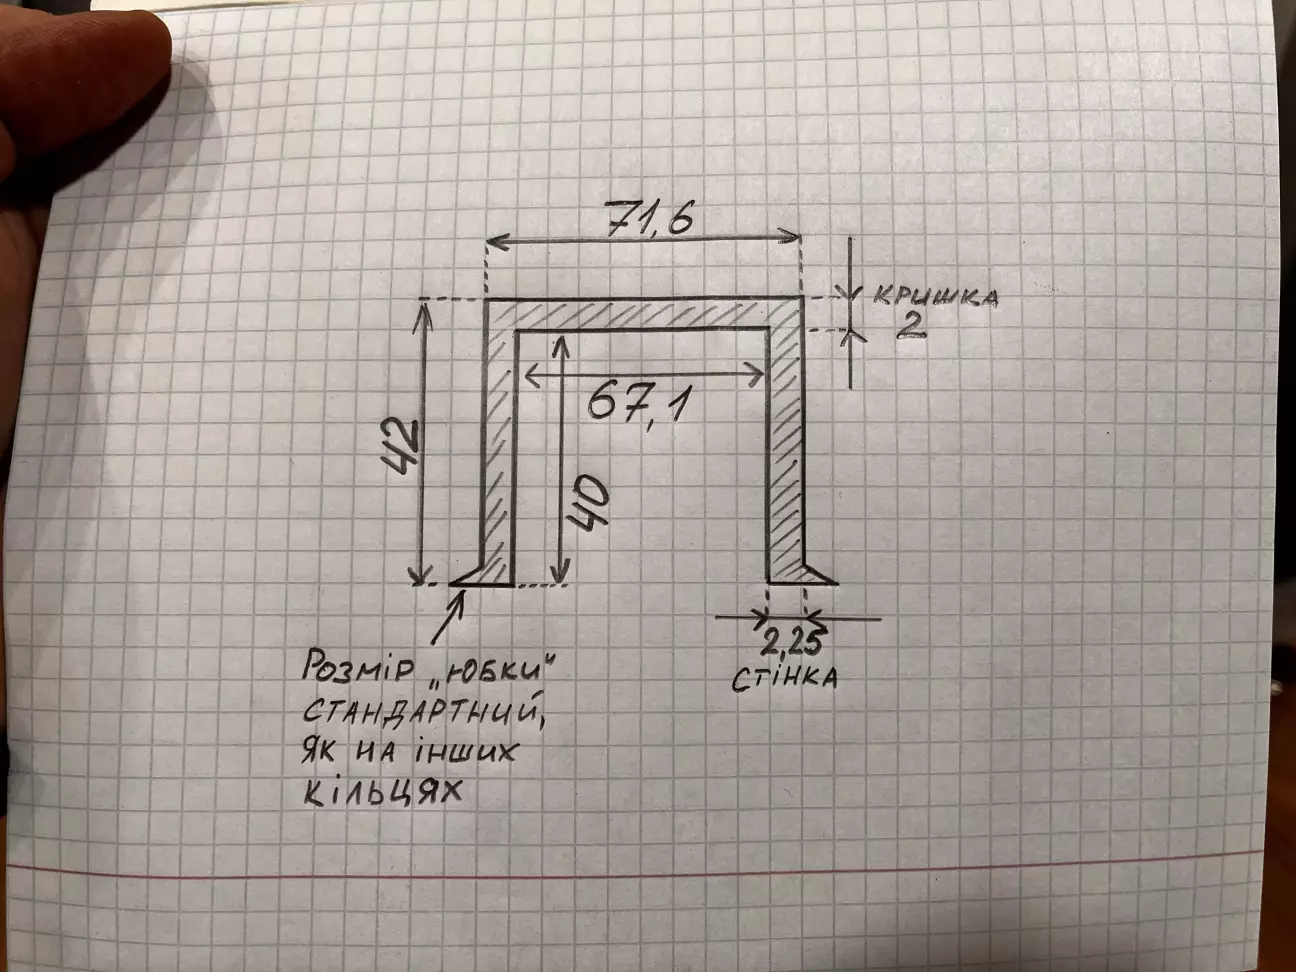 71,6
КРИШКА
2
67,1
42
40
2,25
СТІНКА
РОЗМІР „ЮБКИ“
СТАНДАРТНИЙ,
ЯК НА ІНШИХ
КІЛЬЦЯХ